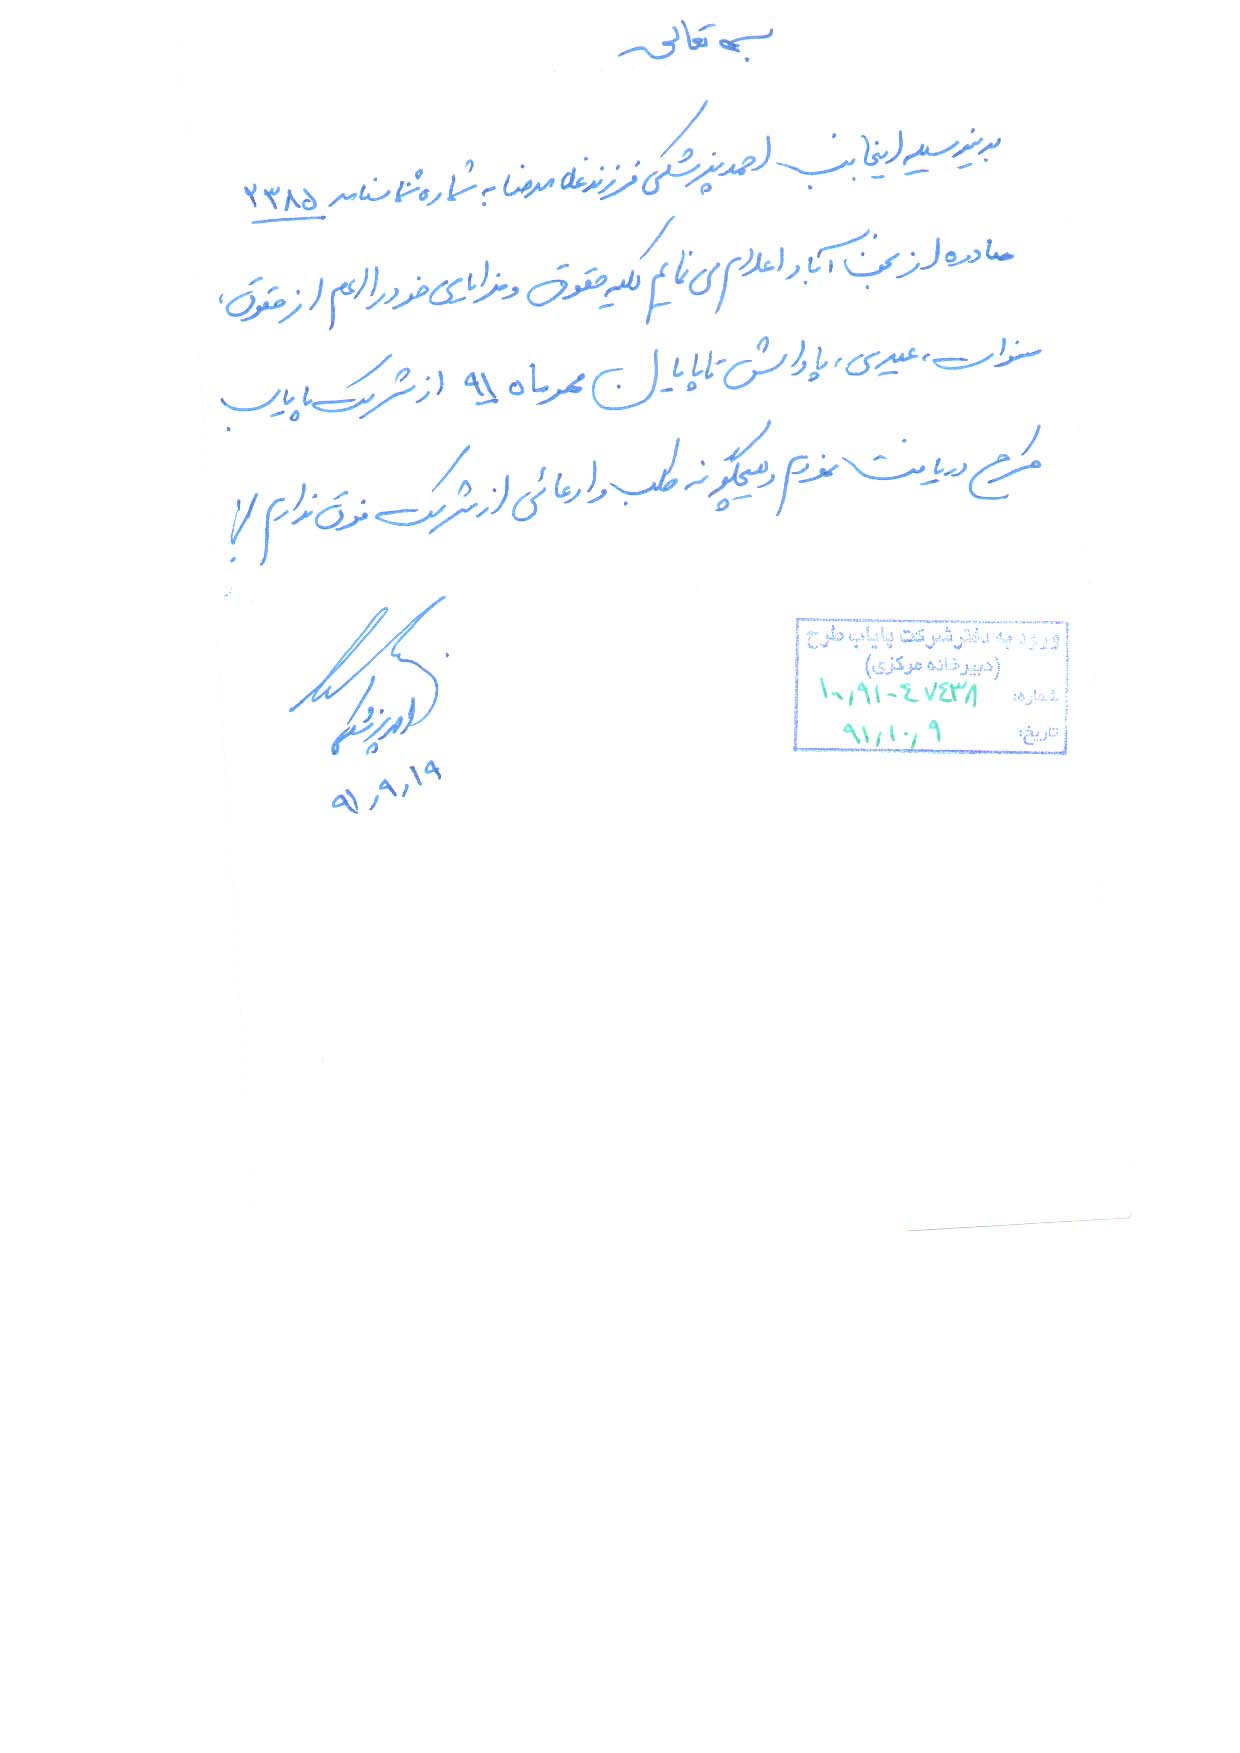 بسمه تعالی
بدینوسیله اینجانب احمد پزشکی فرزند غلامرضا به شماره شناسنامه ۲۳۸۵
صادره از نجف آباد اعلام می نمایم کلیه حقوق و مزایای خود را اعم از حقوق،
سنوات، عیدی، پاداش تا پایان مهرماه ۹۱ از شرکت پایاب
طرح دریافت نمودم و هیچگونه طلب و ادعائی از شرکت فوق ندارم
احمد پزشکی
۹۱٫۹٫۱۹
ورود به دفتر شرکت پایاب طرح
(دبیرخانه مرکزی)
شماره: ۱۰٫۹۱-۴۷۴۳۸
تاریخ: ۹۱٫۱۰٫۹